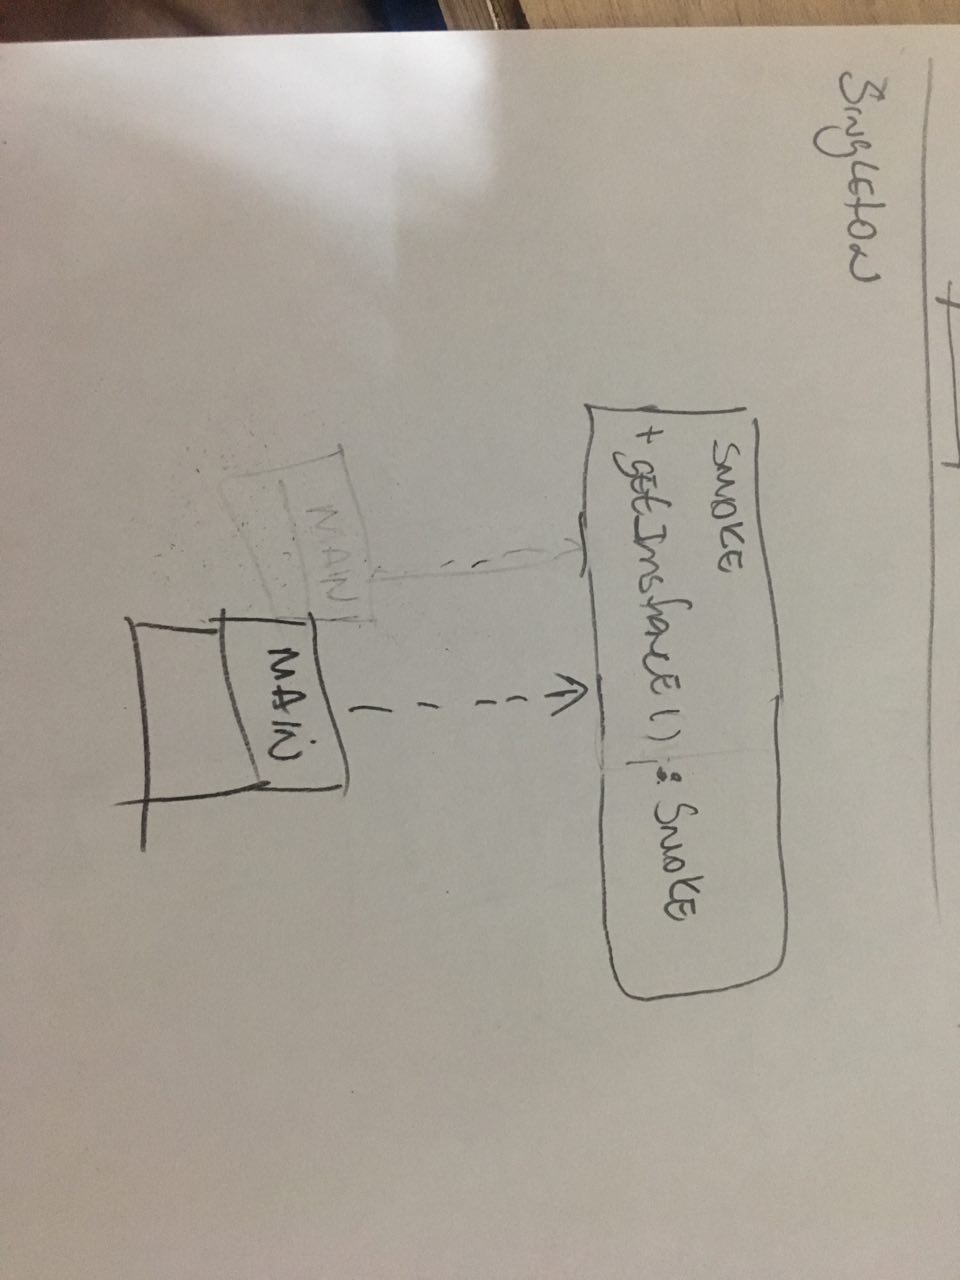 SINGLEtON
SMOKE
+ gEt_InstancE() : SMOKE
MAIN
MAIN